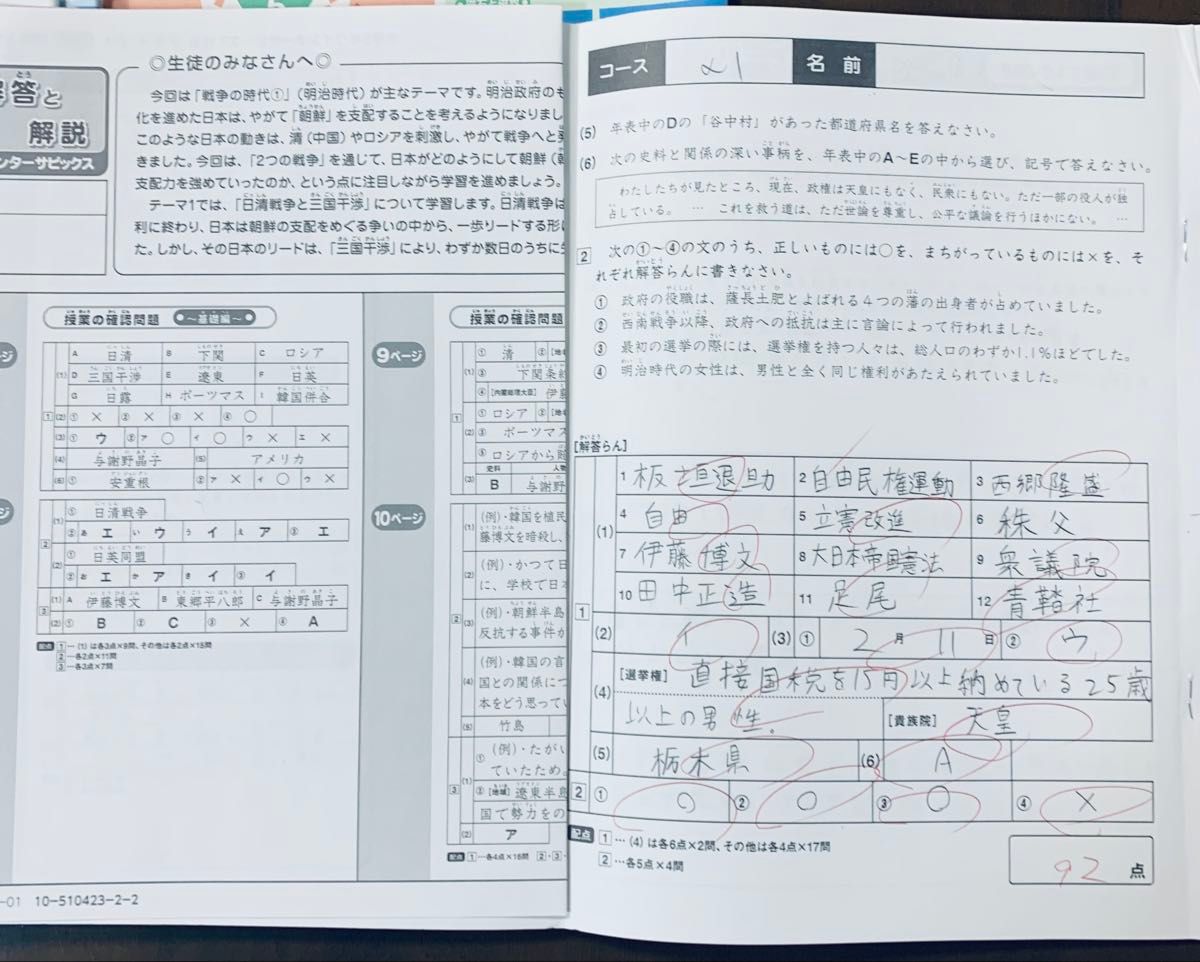 解答と
解説
ンターサピックス
◎生徒のみなさんへ◎
今回は「戦争の時代①」(明治時代)が主なテーマです。明治政府のも
化を進めた日本は、やがて「朝鮮」を支配することを考えるようになりまし
このような日本の動きは、清(中国)やロシアを刺激し、やがて戦争へと発
きました。今回は、「2つの戦争」を通じて、日本がどのようにして朝鮮(韓
支配力を強めていったのか、という点に注目しながら学習を進めましょう。
テーマ1では、「日清戦争と三国干渉」について学習します。日清戦争は
利に終わり、日本は朝鮮の支配をめぐる争いの中から、一歩リードする形に
た。しかし、その日本のリードは、「三国干渉」により、わずか数日のうちに
ページ
授業の確認問題 ～基礎編～
1
(1) A 日清 B 下関 C ロシア
D 三国干渉 E 遼東 F 日英
G 日露 H ポーツマス I 韓国併合
(2) ① × ② × ③ × ④ ○
(3) ① ウ ② ア ○ イ ○ ウ × エ ×
(4) 与謝野晶子 (5) アメリカ
(6) ① 安重根 ② ア × イ ○ ウ ×
2
(1) ① 日清戦争
② あ エ い ウ う イ え ア ③ エ
(2) ① 日英同盟
② お エ か ア き イ ③ イ
3
(1) A 伊藤博文 B 東郷平八郎 C 与謝野晶子
(2) ① B ② C ③ × ④ A
配点 1 …(1)は各3点×9問、その他は各2点×15問
2 …各2点×11問
3 …各3点×7問
9ページ
授業の確認問題
1
(1) ① 清 ②
③ 下関条約
④ [内閣総理大臣] 伊
(2) ① ロシア ②
③ ポーツマ
⑤ ロシアから
(3) 史料 人物
B 与謝野
10ページ
2
(1) (例)・韓国を植民
藤博文を暗殺し、
(2) (例)・かつて日
に、学校で日本
(3) (例)・朝鮮半島
反抗する事件が
(4) (例)・韓国の言
国との関係につ
本をどう思ってい
(5) 竹島
3
(1) ① (例)・たがい
ていたため。
② [地域] 遼東半島
国で勢力をの
(2) ア
配点 1 …各4点×16問 2・3
-01 10-510423-2-2
コース α1 名前
(5) 年表中のDの「谷中村」があった都道府県名を答えなさい。
(6) 次の史料と関係の深い事柄を、年表中のA～Eの中から選び、記号で答えなさい。
わたしたちが見たところ、現在、政権は天皇にもなく、民衆にもない。ただ一部の役人が独
占している。 … これを救う道は、ただ世論を尊重し、公平な議論を行うほかにない。 …
2 次の①～④の文のうち、正しいものには○を、まちがっているものには×を、そ
れぞれ解答らんに書きなさい。
① 政府の役職は、薩長土肥とよばれる4つの藩の出身者が占めていました。
② 西南戦争以降、政府への抵抗は主に言論によって行われました。
③ 最初の選挙の際には、選挙権を持つ人々は、総人口のわずか1.1%ほどでした。
④ 明治時代の女性は、男性と全く同じ権利があたえられていました。
[解答らん]
1
(1) 1 板垣退助 2 自由民権運動 3 西郷隆盛
4 自由 5 立憲改進 6 秩父
7 伊藤博文 8 大日本帝国憲法 9 衆議院
10 田中正造 11 足尾 12 青鞜社
(2) イ (3) ① 2月11日 ② ウ
(4) [選挙権] 直接国税を15円以上納めている25歳
以上の男性。 [貴族院] 天皇
(5) 栃木県 (6) A
2 ① ○ ② ○ ③ ○ ④ ×
配点 1 …(4)は各6点×2問、その他は各4点×17問
2 …各5点×4問
92点